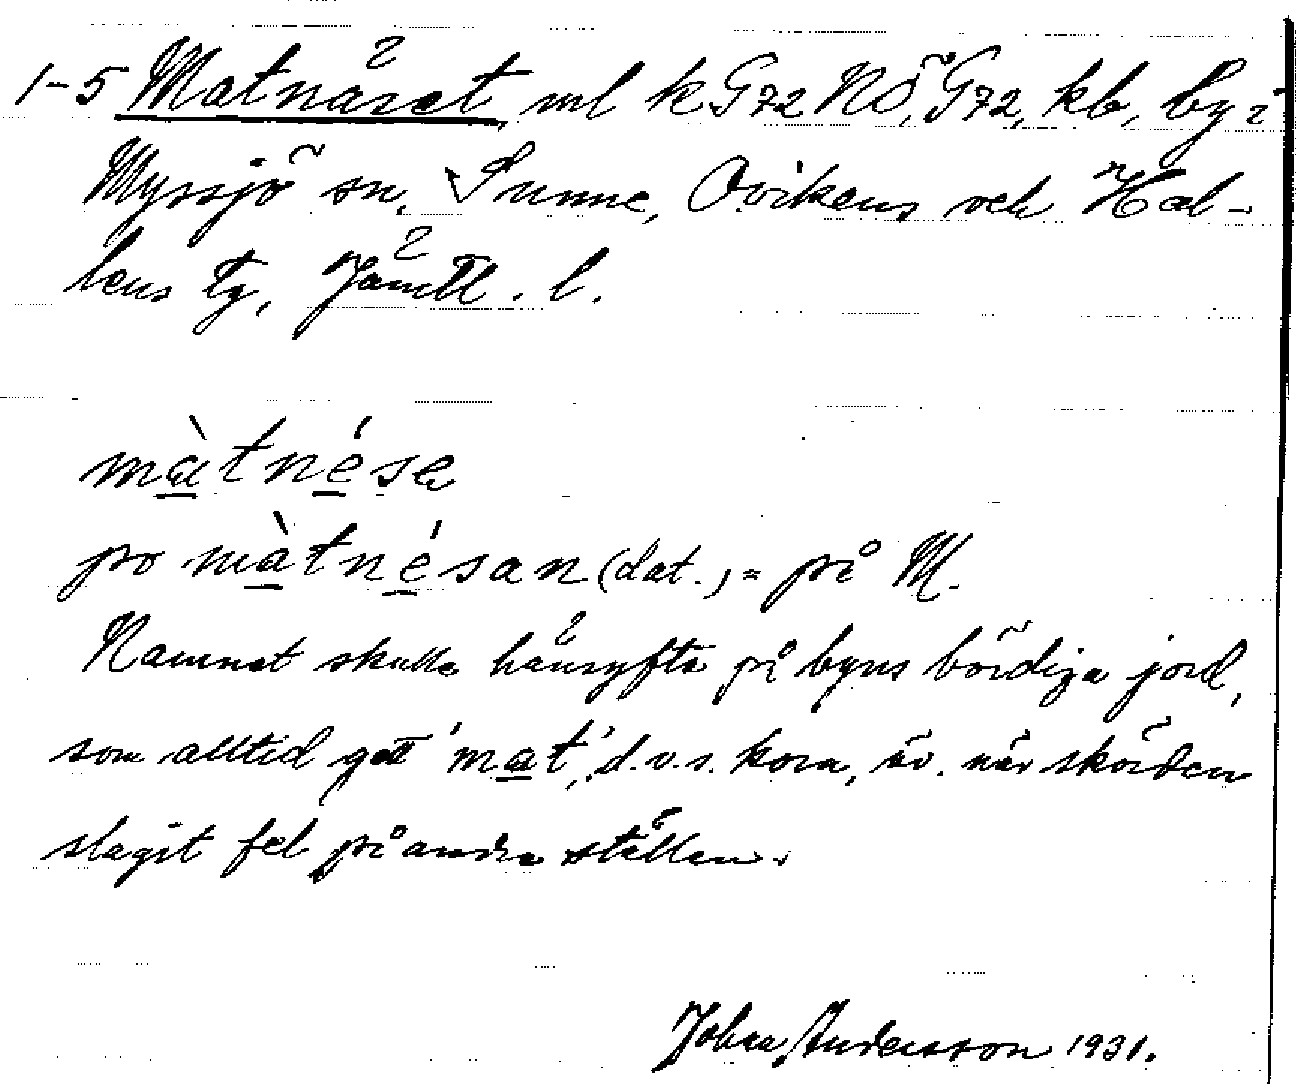 1-5 Matnäset, ml k G72 NÖ, G72, kb, by i
Myssjö sn, Sunne, Ovikens och Hal-
lens tg, Jämtl. l.
màtnése
po màtnésan (dat.) = på M.
Namnet skulle hänsyfta på byns bördiga jord,
som alltid gett 'mat', d.v.s. korn, äv. när skörden
slagit fel på andra ställen.
Johan Andersson 1931.